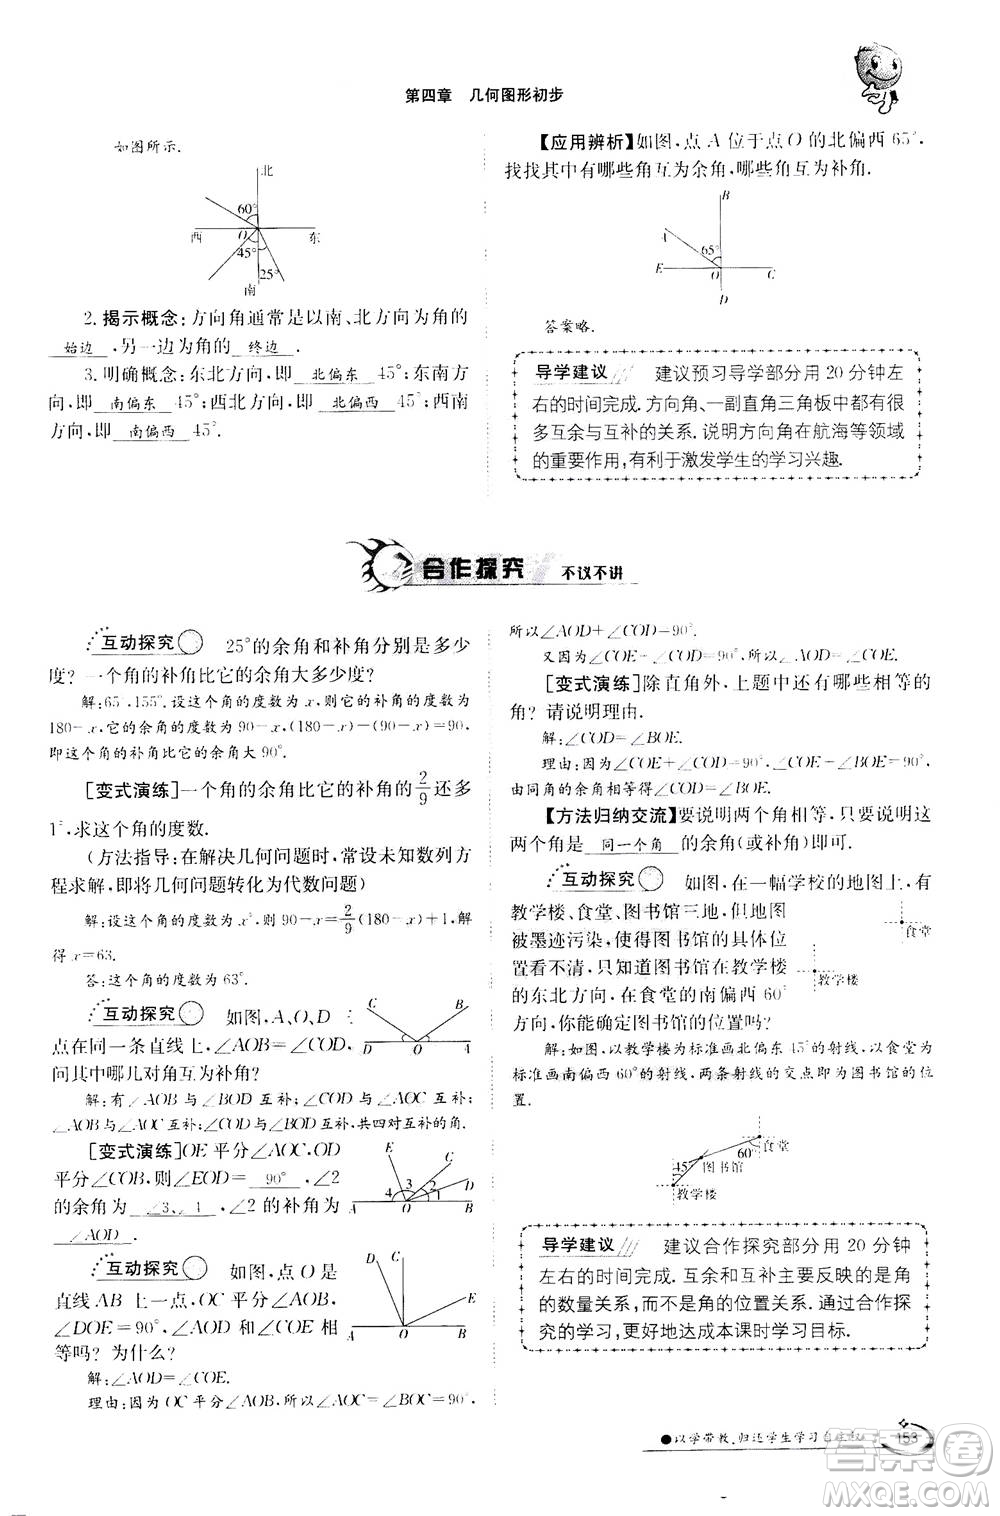 第四章 几何图形初步
如图所示.
北
60°
西 O 东
45°
25°
南
2. 揭示概念:方向角通常是以南、北方向为角的
始边,另一边为角的 终边.
3. 明确概念:东北方向,即 北偏东 45°;东南方
向,即 南偏东 45°;西北方向,即 北偏西 45°;西南
方向,即 南偏西 45°.
【应用辨析】如图,点 A 位于点 O 的北偏西 65°,
找找其中有哪些角互为余角,哪些互为补角.
B
A
65°
E O C
D
答案略.
导学建议 建议预习导学部分用 20 分钟左
右的时间完成. 方向角、一副直角三角板中都有很
多互余与互补的关系. 说明方向角在航海等领域
的重要作用,有利于激发学生的学习兴趣.
合作探究 不议不讲
互动探究 25°的余角和补角分别是多少
度?一个角的补角比它的余角大多少度?
解:65°,155°.设这个角的度数为 x,则它的补角的度数为
180-x,它的余角的度数为 90-x,(180-x)-(90-x)=90,
即这个角的补角比它的余角大 90°.
[变式演练]一个角的余角比它的补角的 2/9 还多
1°,求这个角的度数.
(方法指导:在解决几何问题时,常设未知数列方
程求解,即将几何问题转化为代数问题)
解:设这个角的度数为 x,则 90-x=2/9(180-x)+1,解
得 x=63.
答:这个角的度数为 63°.
互动探究 如图,A、O、D 三
点在同一条直线上,∠AOB=∠COD,
问其中哪几对角互为补角?
C B
D O A
解:有∠AOB 与∠BOD 互补,∠COD 与∠AOC 互补,
∠AOB 与∠AOC 互补,∠COD 与∠BOD 互补,共四对互补的角.
[变式演练]OE 平分∠AOC,OD
平分∠COB,则∠EOD= 90° ,∠2
的余角为 ∠3、∠4 ,∠2 的补角为
∠AOD .
E C
D
4 3 2 1
A O B
互动探究 如图,点 O 是
直线 AB 上一点,OC 平分∠AOB,
∠DOE=90°,∠AOD 和∠COE 相
等吗?为什么?
D C
E
A O B
解:∠AOD=∠COE.
理由:因为 OC 平分∠AOB,所以∠AOC=∠BOC=90°,
所以∠AOD+∠COD=90°.
又因为∠COE+∠COD=90°,所以∠AOD=∠COE.
[变式演练]除直角外,上题中还有哪些相等的
角?请说明理由.
解:∠COD=∠BOE.
理由:因为∠COE+∠COD=90°,∠COE+∠BOE=90°,
由同角的余角相等得∠COD=∠BOE.
【方法归纳交流】要说明两个角相等,只要说明这
两个角是 同一个角 的余角(或补角)即可.
互动探究 如图,在一幅学校的地图上,有
教学楼、食堂、图书馆三地,但地图
被墨迹污染,使得图书馆的具体位
置看不清,只知道图书馆在教学楼
的东北方向,在食堂的南偏西 60°
方向,你能确定图书馆的位置吗?
食堂
教学楼
解:如图,以教学楼为标准画北偏东 45°的射线,以食堂为
标准画南偏西 60°的射线,两条射线的交点即为图书馆的位置.
食堂
60°
45° 图书馆
教学楼
导学建议 建议合作探究部分用 20 分钟
左右的时间完成. 互余和互补主要反映的是角
的数量关系,而不是角的位置关系. 通过合作探
究的学习,更好地达成本课时学习目标.
●以学带教,归还学生学习自主权
153
答案圈
MXQE.COM